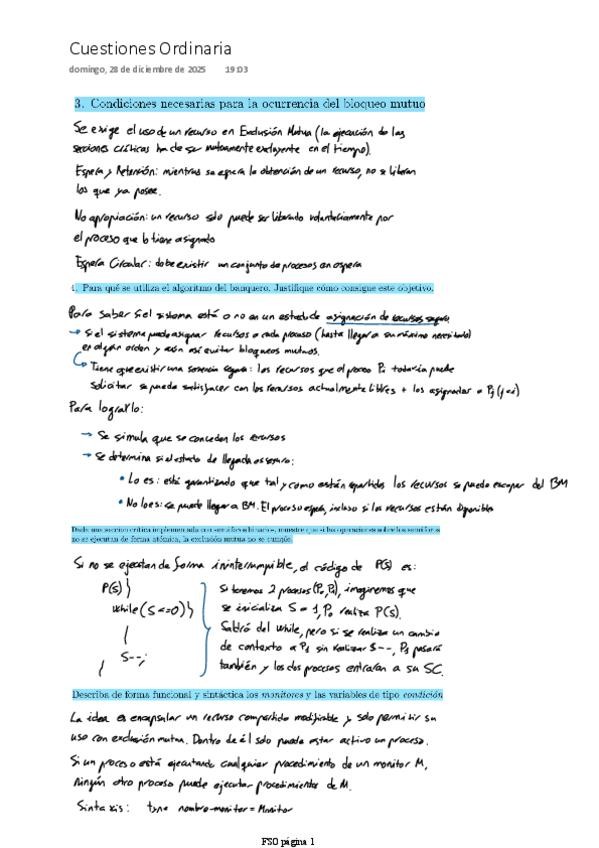 Cuestiones Ordinaria
domingo, 28 de diciembre de 2025 19:03
3. Condiciones necesarias para la ocurrencia del bloqueo mutuo
Se exige el uso de un recurso en Exclusión Mutua (la ejecución de las
secciones críticas ha de ser mutuamente excluyente en el tiempo).
Espera y Retención: mientras se espera la obtención de un recurso, no se liberan
los que ya posee.
No apropiación: un recurso solo puede ser liberado voluntariamente por
el proceso que lo tiene asignado
Espera Circular: debe existir un conjunto de procesos en espera
4. Para qué se utiliza el algoritmo del banquero. Justifique cómo consigue este objetivo.
Para saber si el sistema está o no en un estado de asignación de recursos segura
→ Si el sistema puede asignar recursos a cada proceso (hasta llegar a su máximo necesitado)
en algún orden y aún así evitar bloqueos mutuos.
Tiene que existir una secuencia segura: los recursos que el proceso Pi todavía puede
solicitar se pueda satisfacer con los recursos actualmente libres + los asignados a Pj (j<i)
Para lograrlo:
→ Se simula que se conceden los recursos
→ Se determina si el estado de llegada es seguro:
• Lo es: está garantizado que tal y como están repartidos los recursos se puede escapar del BM
• No lo es: se puede llegar a BM. El proceso espera, incluso si los recursos están disponibles
Dada una sección crítica implementada con semáforos binarios, muestre que si las operaciones sobre los semáforos
no se ejecutan de forma atómica, la exclusión mutua no se cumple.
Si no se ejecutan de forma ininterrumpible, el código de P(S) es:
P(S) }
while (S<=0) }
}
S--;
}
Si tenemos 2 procesos (P0, P1), imaginemos que
se inicializa S = 1, P0 realiza P(S).
Saldrá del while, pero si se realiza un cambio
de contexto a P1 sin realizar S--, P1 pasará
también y los dos procesos entrarán a su SC.
Describa de forma funcional y sintáctica los monitores y las variables de tipo condición
La idea es encapsular un recurso compartido modificable y solo permitir su
uso con exclusión mutua. Dentro de él solo puede estar activo un proceso.
Si un proceso está ejecutando cualquier procedimiento de un monitor M,
ningún otro proceso puede ejecutar procedimientos de M.
Sintaxis: type nombre-monitor = Monitor
FSO página 1